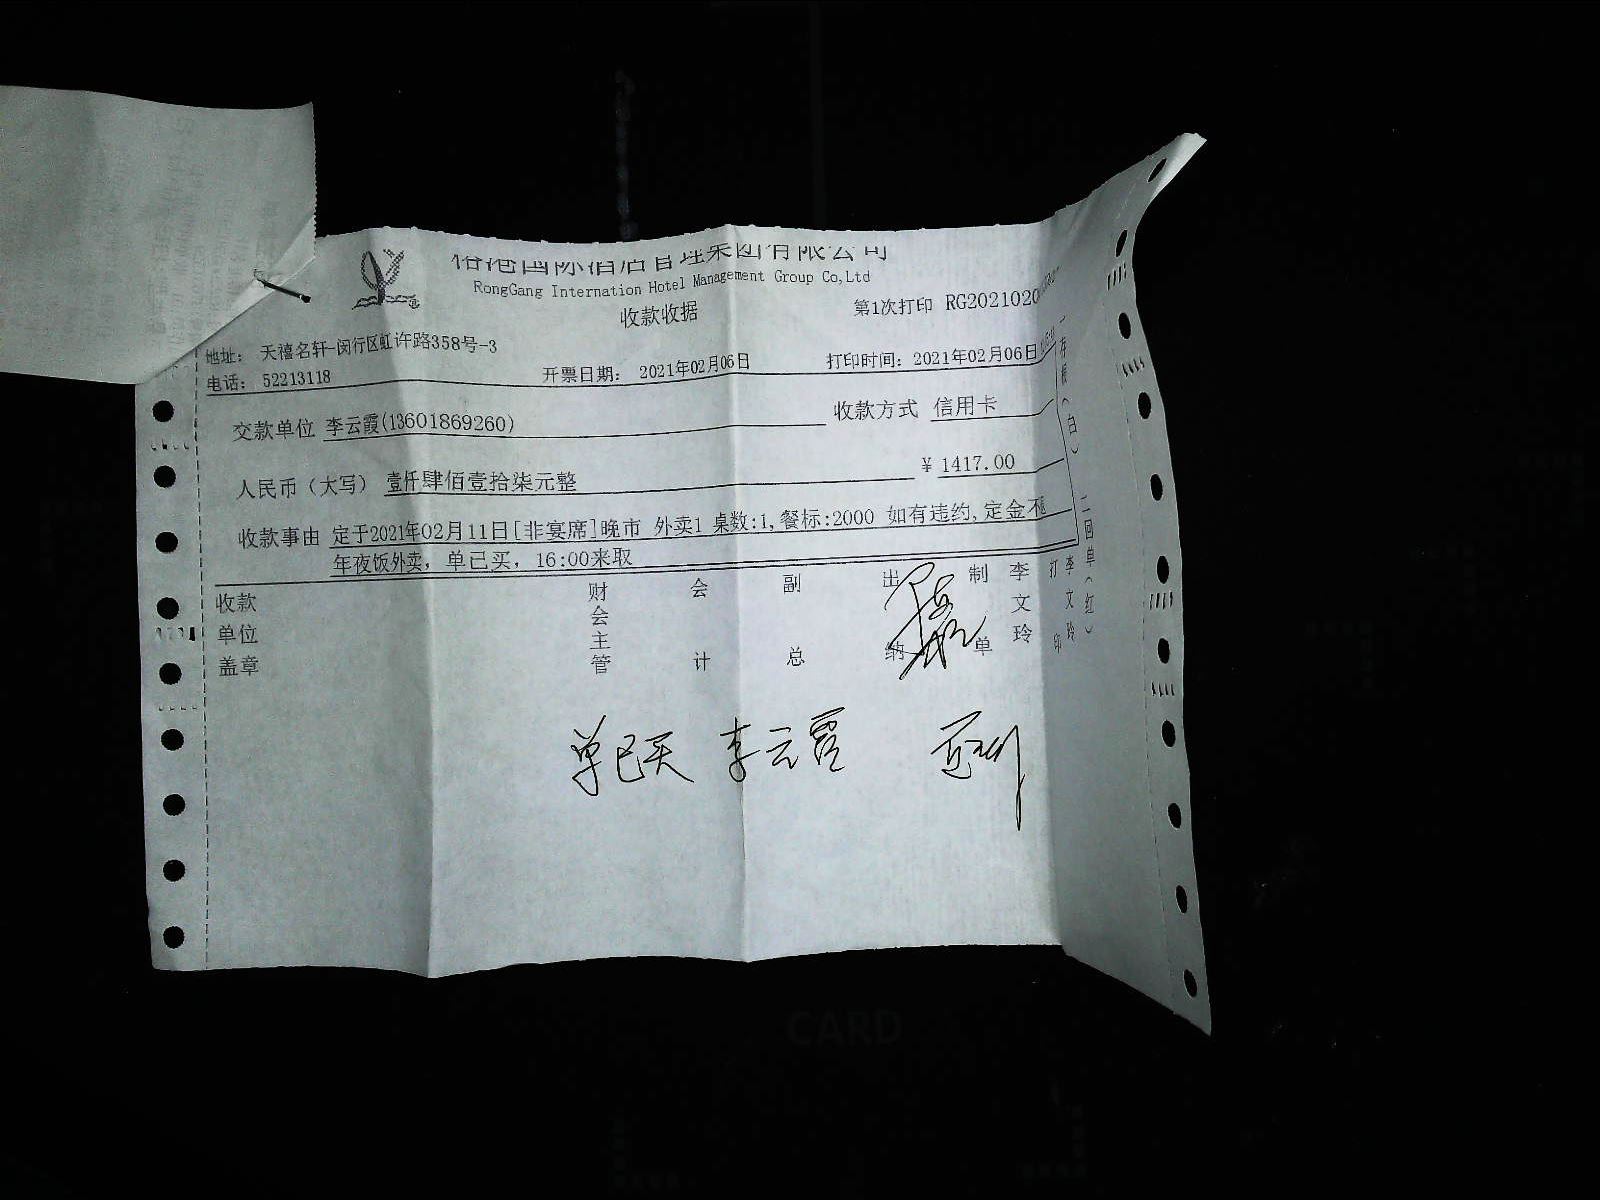 国际酒店管理集团有限公司
RongGang Internation Hotel Management Group Co,Ltd
收款收据
第1次打印 RG2021020
地址: 天禧名轩-闵行区虹许路358号-3
电话: 52213118
开票日期: 2021年02月06日
打印时间: 2021年02月06日
交款单位 李云霞(13601869260)
收款方式 信用卡
人民币(大写) 壹仟肆佰壹拾柒元整
¥ 1417.00
收款事由 定于2021年02月11日[非宴席]晚市 外卖1 桌数:1,餐标:2000 如有违约,定金不
年夜饭外卖, 单已买, 16:00来取
收款单位盖章
财会主管
会计
副总
出纳
制单
李文玲
打印
李文玲
一存根(白)
二回单(红)
单已买 李云霞
CARD